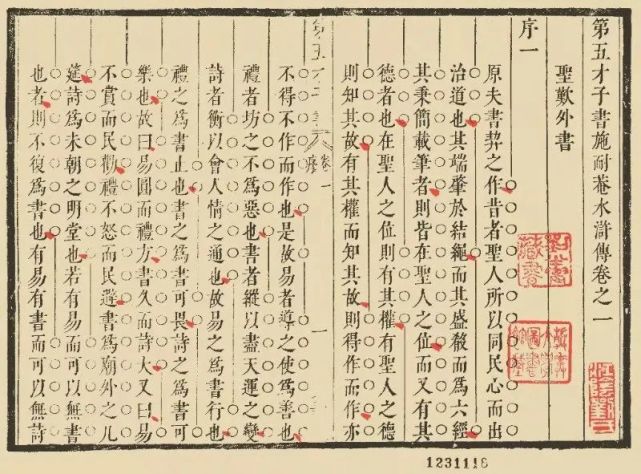 第五才子書施耐菴水滸傳卷之一
聖歎外書
序一
原夫書契之作昔者聖人所以同民心而出
治道也其端肇於結繩而其盛殽而爲六經
其秉簡載筆者則皆在聖人之位而又有其
德者也在聖人之位則有其權有聖人之德
則知其故有其權而知其故則得作而作亦
第五才子書
序一
卷一
一
不得不作而作也是故易者導之使爲善也
禮者坊之不爲惡也書者縱以盡天運之變
詩者衡以會人情之通也故易之爲書行也
禮之爲書止也書之爲書可畏詩之爲書可
樂也故曰易圓而禮方書久而詩大又曰易
不賞而民勸禮不怒而民避書爲廟外之几
筵詩爲未朝之明堂也若有易而可以無書
也者則不復爲書也有易有書而可以無詩
1231118